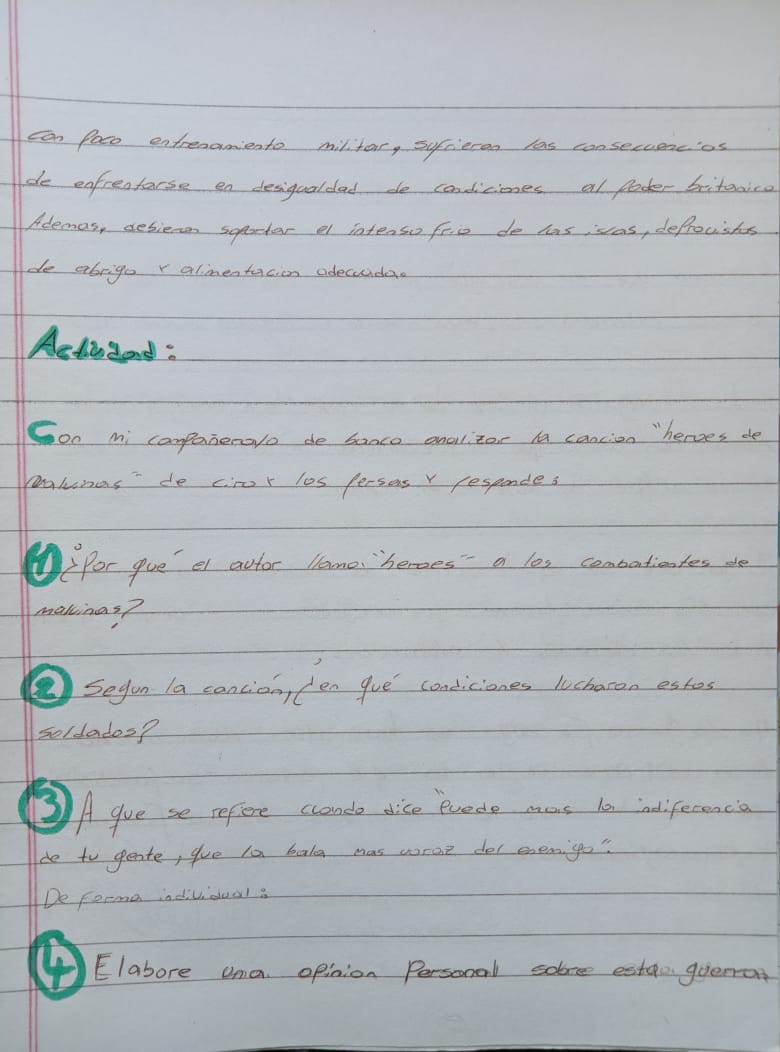 con poco entrenamiento militar, sufrieron las consecuencias
de enfrentarse en desigualdad de condiciones al poder britanico
Ademas, debieron soportar el intenso frio de las islas, desprovistos
de abrigo y alimentacion adecuada.
Actividad:
Con mi compañero/o de banco analizar la cancion "heroes de
malvinas" de ciro y los persas y responde:
1) ¿Por qué el autor llama "heroes" a los combatientes de
malvinas?
2) Segun la canción, ¿en qué condiciones lucharon estos
soldados?
3) A que se refiere cuando dice "Puede mas la indiferencia
de tu gente, que la bala mas voraz del enemigo".
De forma individual:
4) Elabore una opinion Personal sobre esta guerra